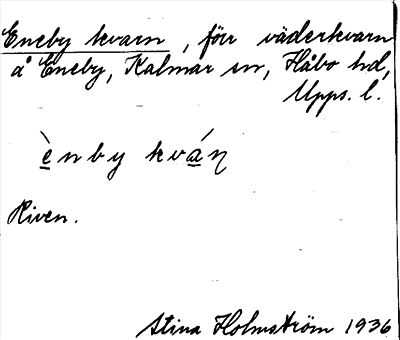 Eneby kvarn, förr väderkvarn
å Eneby, Kalmar sn, Håbo hd,
Upps. l.
è̱nby kvá̱ɳ
Riven.
Stina Holmström 1936